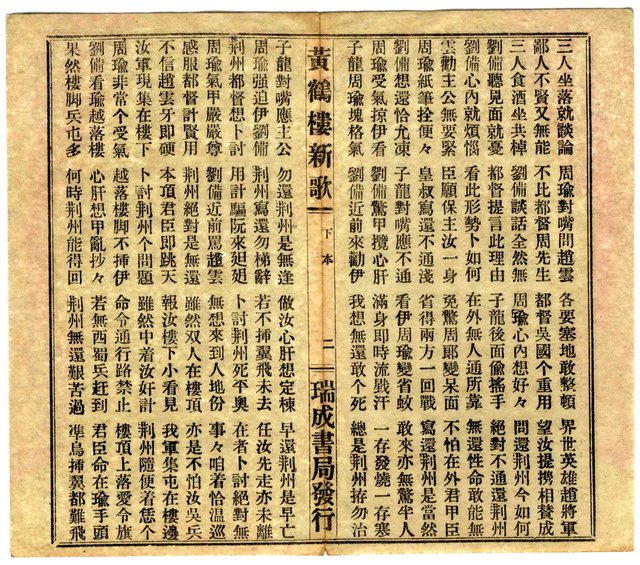 三人坐落就談論 周瑜對嘴問趙雲 各要塞地敢整頓 界世英雄趙將軍
鄙人不賢又無能 不比都督周先生 都督吳國个重用 望汝提携相賛成
三人食酒坐共棹 劉備談話全然無 周瑜心內想好々 問還荆州今如何
劉備聽見面就憂 都督提言此理由 子龍後面偷搖手 絕對不通還荆州
劉備心內就煩惱 看此形勢卜如何 在外無人通所靠 無還性命敢能無
雲勸主公無要緊 臣願保主汝一身 免驚周郞變呆面 不怕在外君甲臣
周瑜紙筆拴便々 皇叔寫還不通淺 省得兩方一回戰 寫還荆州是當然
劉備想還恰允凍 子龍對嘴應不通 看伊周瑜變省蚊 敢來亦無驚半人
周瑜受氣掠伊看 劉備驚甲攪心肝 滿身即時流戝汗 一存發燒一存寒
子龍周瑜塊格氣 劉備近前來勸伊 我想無還敢个死 總是荆州拵勿治
黃鶴樓新歌 下本 二 瑞成書局發行
子龍對嘴應主公 勿還荆州是無逢 倣汝心肝想定棟 早還荆州是早亡
周瑜強迫伊劉備 荆州寫還勿梯辭 若不揷翼飛未去 任汝先走亦未離
荆州都督想卜討 用計騙阮來廻廻 卜討荆州死乎奥 在者卜討絕對無
周瑜氣甲嚴嚴尊 劉備近前罵趙雲 無想來到人地份 事々咱着恰溫巡
感服都督計賢用 荆州絕對無愛還 雖然双人在樓頂 亦是不怕汝吳兵
不信趙雲牙即硬 本項君臣即跳天 報汝樓下小看見 我軍集屯在樓邊
汝軍現集在樓下 卜討荆州个問題 雖然中着汝奸計 荆州隨便着恁个
周瑜非常个受氣 越落樓脚不揷伊 命令通行路禁止 樓頂上落愛令旗
劉備看瑜越落樓 心肝想甲亂抄々 若無西蜀兵赶到 君臣命在瑜手頭
果然樓脚兵屯多 何時荆州能得回 荆州無還艱苦過 凖鳥揷翼都難飛